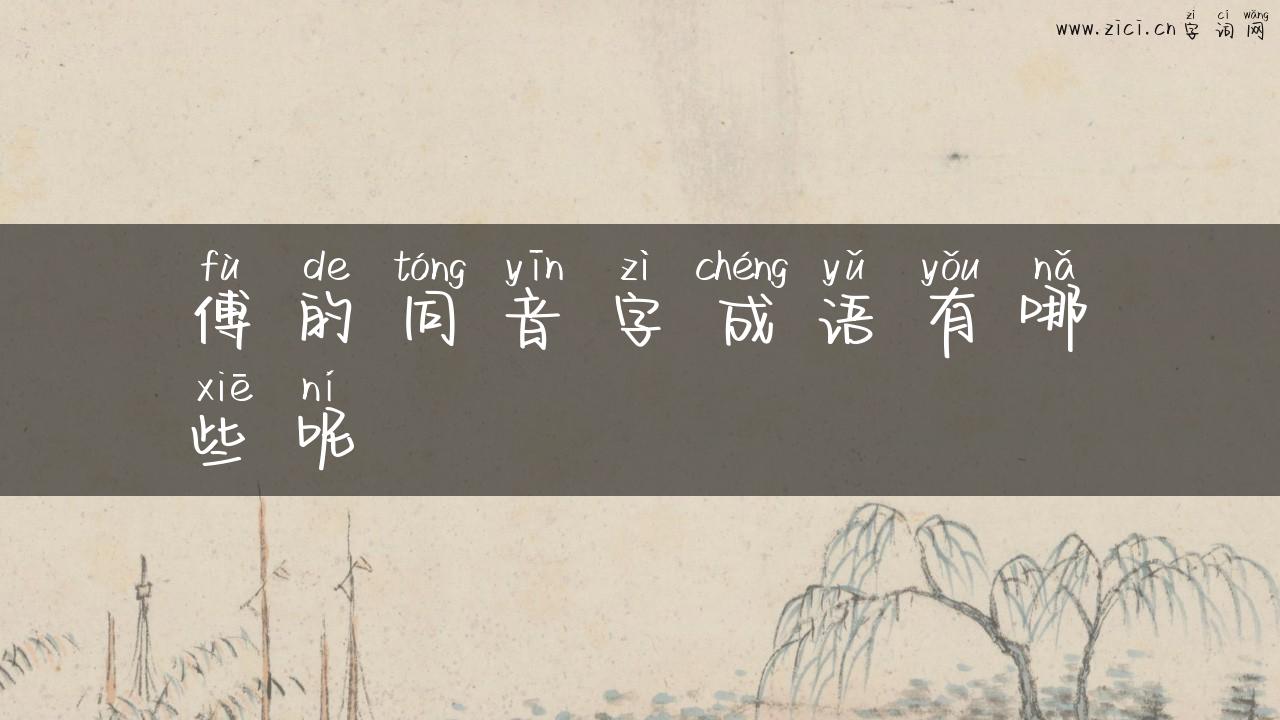 zì cí wǎng
www.zici.cn字词网
fù de tóng yīn zì chéng yǔ yǒu nǎ
傅的同音字成语有哪
xiē ní
些呢